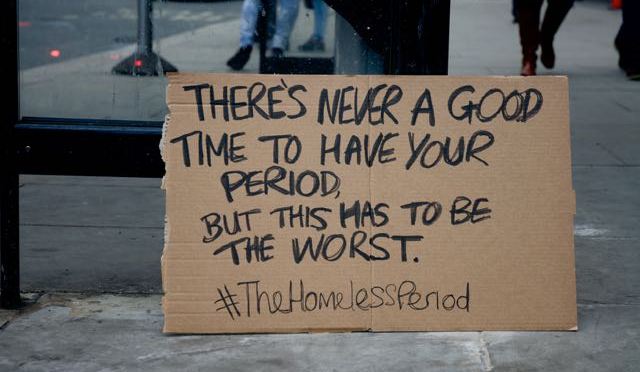 THERE'S NEVER A GOOD
TIME TO HAVE YOUR
PERIOD,
BUT THIS HAS TO BE
THE WORST.
#TheHomelessPeriod